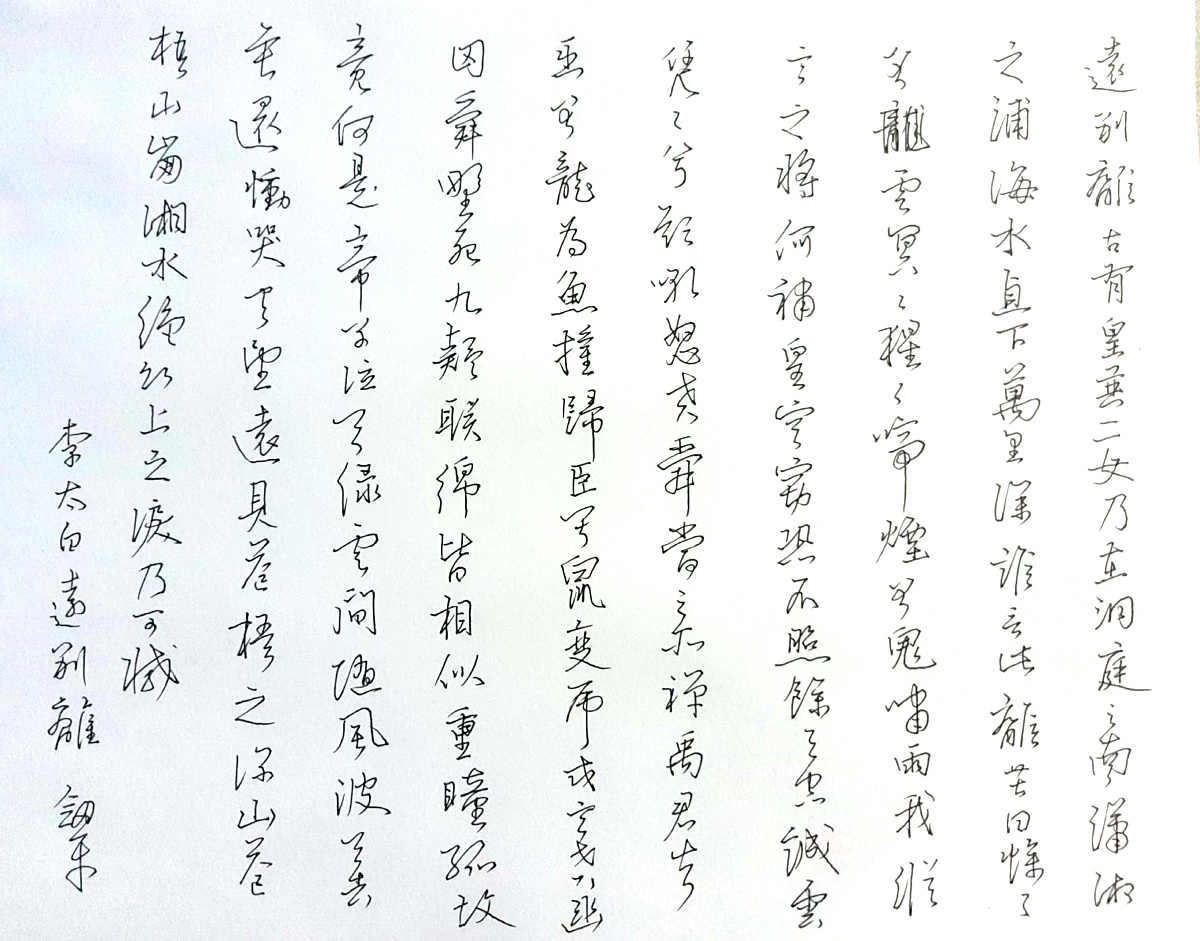 遠別離古有皇英二女乃在洞庭之南瀟湘
之浦海水直下萬里深誰言此離苦日慘々
兮雲冥々猩々啼煙兮鬼嘯雨我縱
言之將何補皇穹竊恐不照餘之忠誠雲
憑々兮欲吼怒堯舜當之亦禪禹君失
臣兮龍為魚權歸臣兮鼠變虎或言堯幽
囚舜野死九疑聯綿皆相似重瞳孤墳
竟何是帝子泣兮綠雲間隨風波兮去
無還慟哭兮望遠見蒼梧之深山蒼
梧山崩湘水絕竹上之淚乃可滅
李太白遠別離